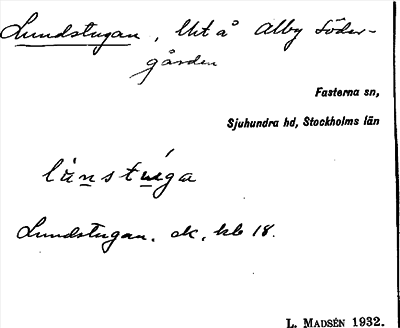 Lundstugan, Utt å Alby Söder-
gården
Fasterna sn,
Sjuhundra hd, Stockholms län
länstuga
Lundstugan. ek. kbl 18.
L. MADSÉN 1932.